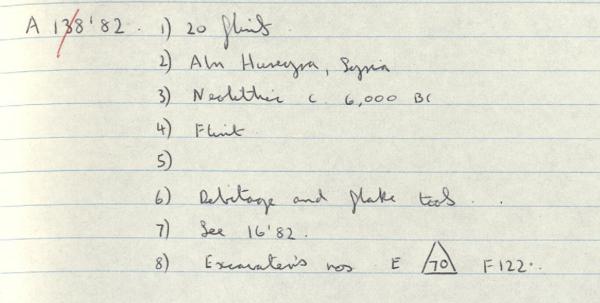 A 138'82. 1) 20 flints.
2) Abu Hureyra, Syria
3) Neolithic c. 6,000 BC
4) Flint
5)
6) Debitage and flake tools.
7) See 16'82.
8) Excavater's nos E 70 F122.